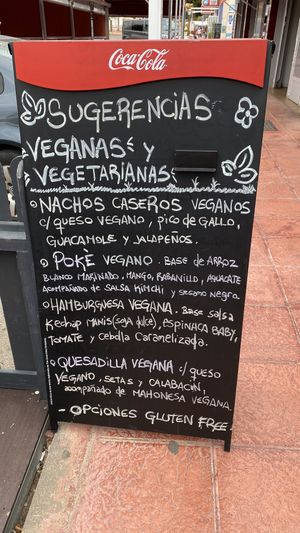 Coca-Cola
SUGERENCIAS
VEGANAS Y
VEGETARIANAS
NACHOS CASEROS VEGANOS
c/QUESO VEGANO, PICO de GALLO,
GUACAMOLE Y JALAPEÑOS.
POKE VEGANO. BASE DE ARROZ
BLANCO MARINADO, MANGO, RABANILLO, AGUACATE
ACOMPAÑADO DE SALSA KIMCHI Y SESAMO NEGRO.
HAMBURGUESA VEGANA. BASE SALSA
KECHAP MANIS (SOJA DULCE), ESPINACA BABY,
TOMATE Y cebolla CARAMELIZADA.
QUESADILLA VEGANA c/QUESO
VEGANO, SETAS Y CALABACÍN,
ACOMPAÑADO DE MAHONESA VEGANA.
- OPCIONES GLUTEN FREE -